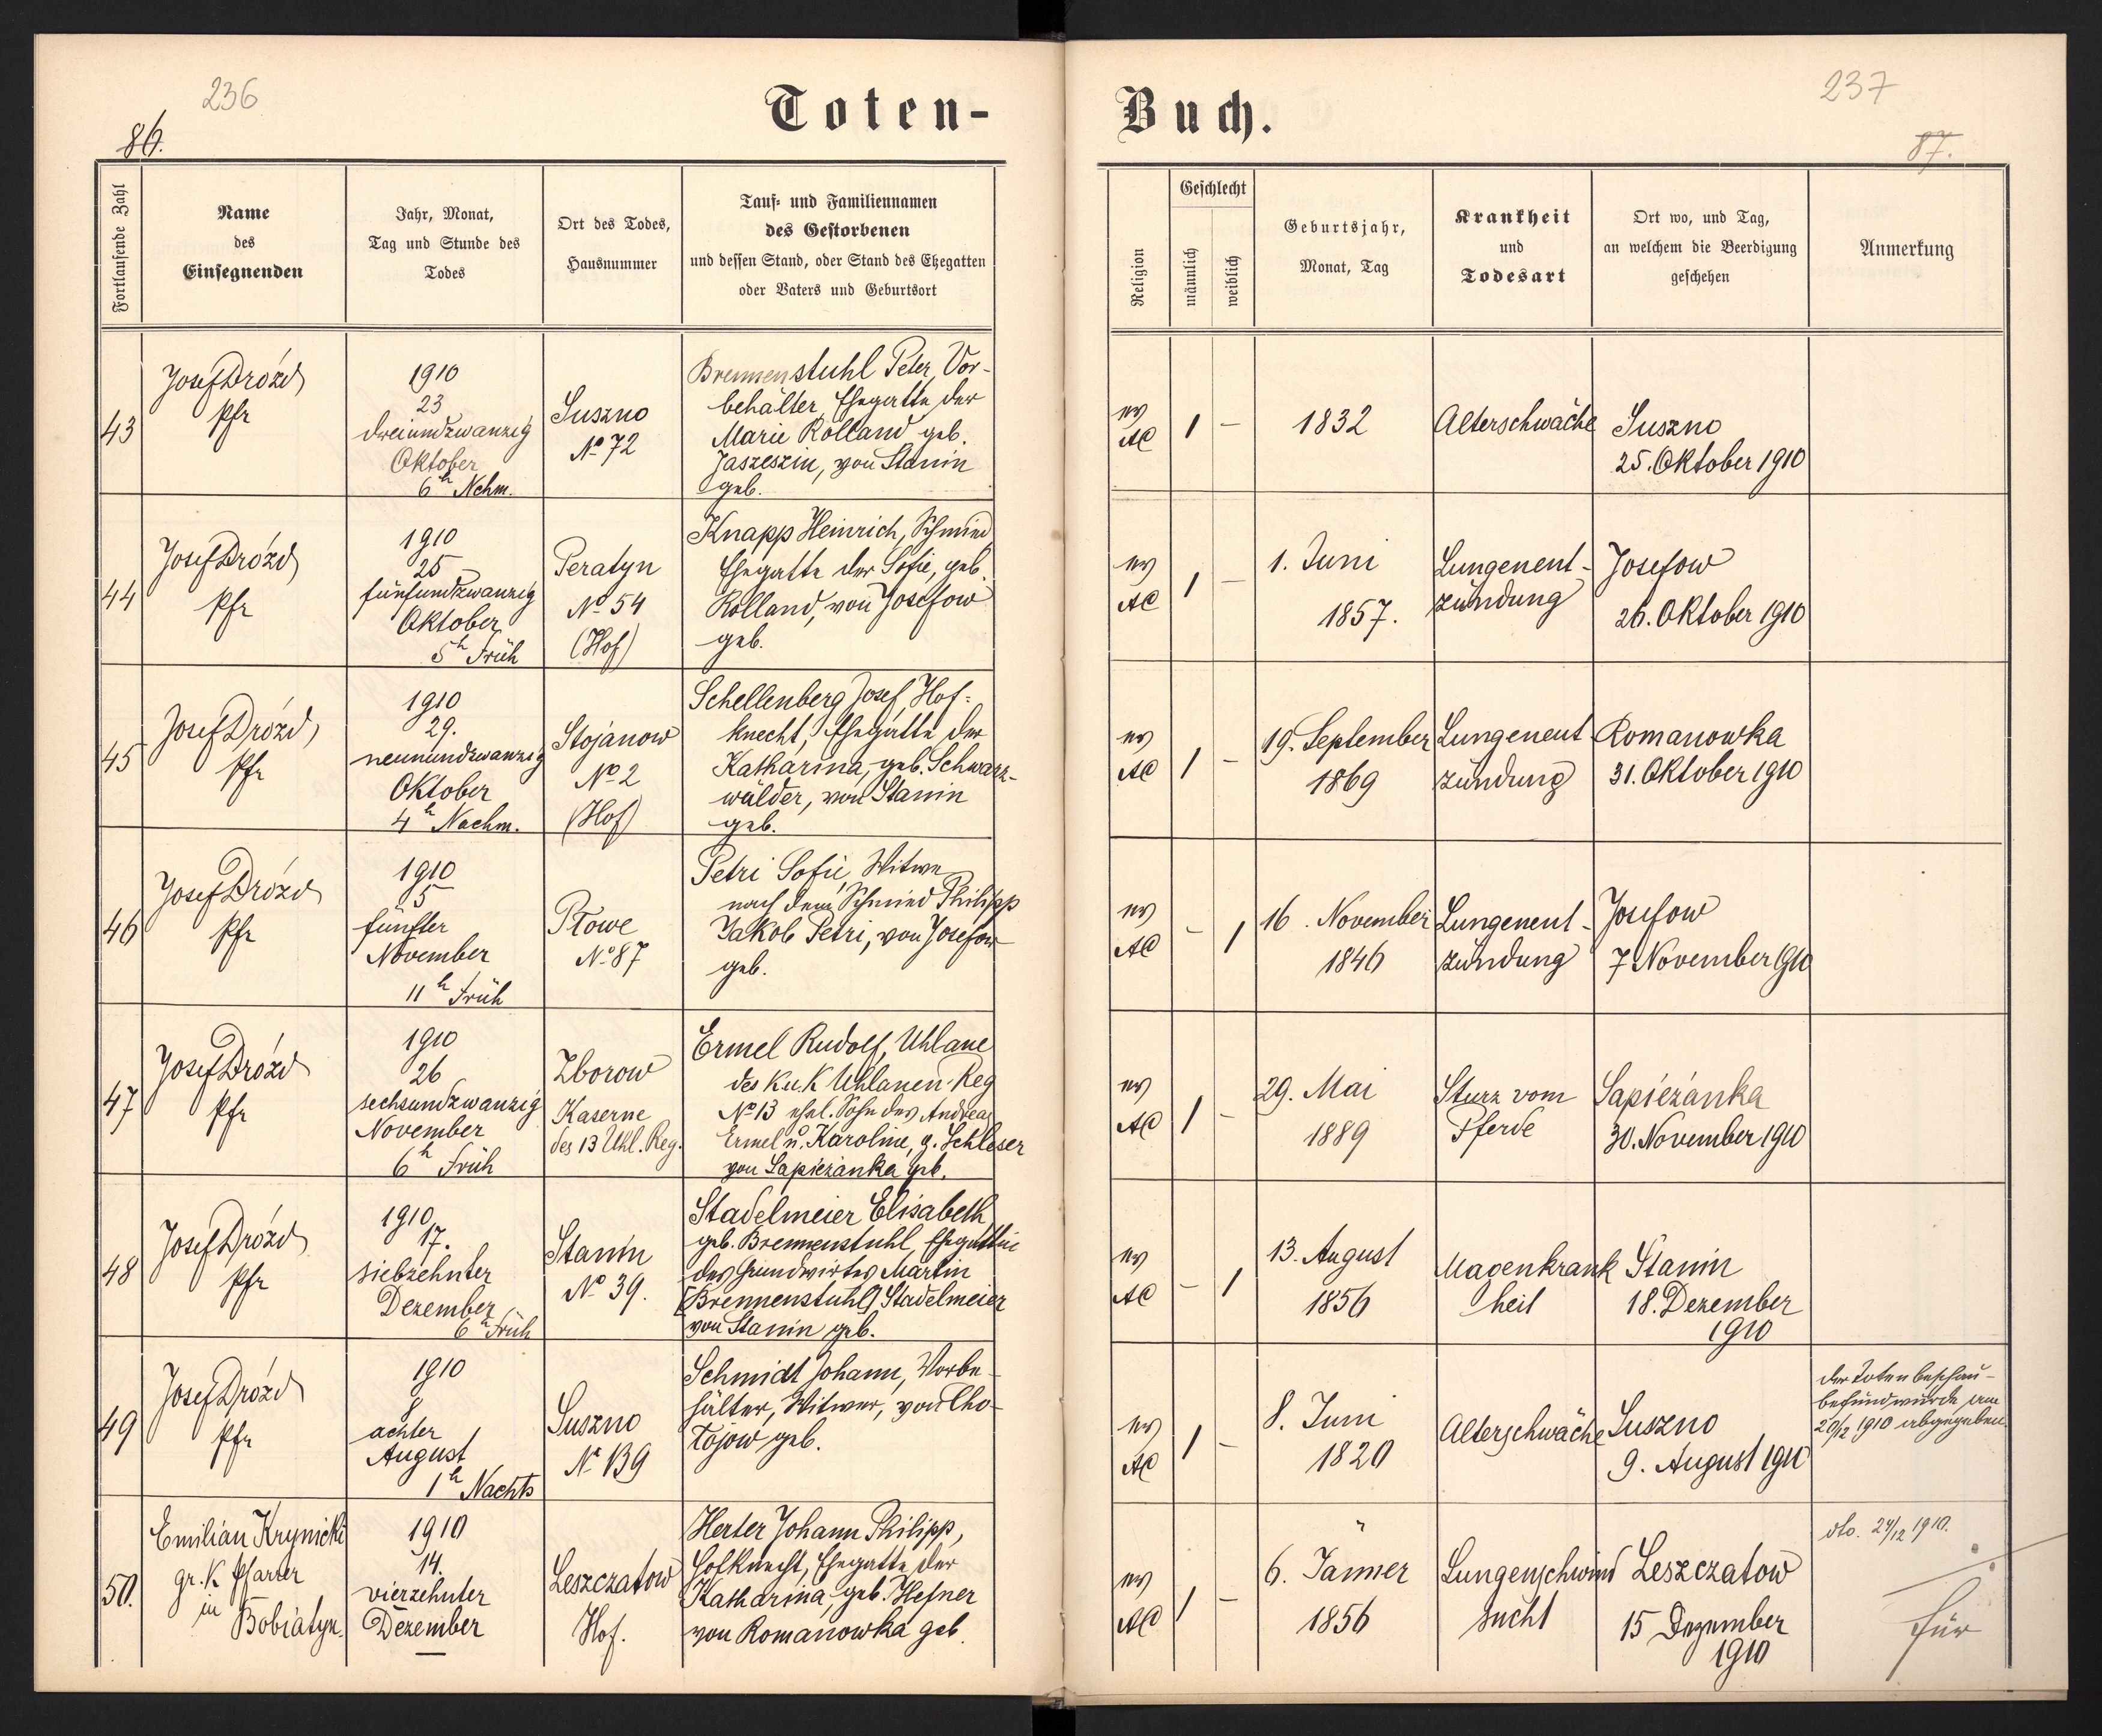 236
86.
Toten-
Fortlaufende Zahl
Name
des
Einsegnenden
Jahr, Monat,
Tag und Stunde des
Todes
Ort des Todes,
Hausnummer
Tauf- und Familiennamen
des Gestorbenen
und dessen Stand, oder Stand des Ehegatten
oder Vaters und Geburtsort
43
Josef Drózd
Pfr
1910
23
dreiundzwanzig
Oktober
6h Nchm.
Suszno
No 72
Brennenstuhl Peter, Vor-
behälter, Ehegatte der
Marie Rolland geb.
Jaszeszin, von Stanin
geb.
44
Josef Drózd
Pfr
1910
25
fünfundzwanzig
Oktober
5h Früh
Peratyn
No 54
(Hof)
Knapp Heinrich, Schmied
Ehegatte der Sofie, geb.
Rolland, von Josefow
geb.
45
Josef Drózd
Pfr
1910
29.
neunundzwanzig
Oktober
4h Nachm.
Stojanow
No 2
(Hof)
Schellenberg Josef, Hof-
knecht, Ehegatte der
Katharina, geb. Schwarz-
wälder, von Stanin
geb.
46
Josef Drózd
Pfr
1910
5
fünfter
November
11h Früh
Płowe
No 87
Petri Sofie, Witwe
nach dem Schmied Philipp
Jakob Petri, von Josefow
geb.
47
Josef Drózd
Pfr
1910
26
sechsundzwanzig
November
6h Früh
Zborow
Kaserne
des 13 Uhl. Reg.
Ermel Rudolf, Uhlane
des K.u.K Uhlanen-Reg
No 13 ehel. Sohn des Andreas
Ermel u. Karoline, g. Schleser
von Sapieżanka geb.
48
Josef Drózd
Pfr
1910
17.
siebzehnter
Dezember
6h Früh
Stanin
No 39.
Stadelmeier Elisabeth
geb. Brennenstuhl, Ehegattin
des Grundwirtes Martin
[Brennenstuhl] Stadelmeier
von Stanin geb.
49
Josef Drózd
Pfr
1910
8
achter
August
1h Nachts
Suszno
No 139
Schmidt Johann, Vorbe-
hälter, Witwer, von Cho-
łojow geb.
50.
Emilian Krynicki
gr. K Pfarrer
in
Bobiatyn.
1910
14.
vierzehnter
Dezember
Leszczatow
Hof.
Herter Johann Philipp,
Hofknecht, Ehegatte der
Katharina, geb. Hefner
von Romanowka geb.
237
87.
Buch.
Religion
Geschlecht
männlich
weiblich
Geburtsjahr,
Monat, Tag
Krankheit
und
Todesart
Ort wo, und Tag,
an welchem die Beerdigung
geschehen
Anmerkung
ev
AC
1 –
1832
Alterschwäche
Suszno
25. Oktober 1910
ev
AC
1 –
1. Juni
1857.
Lungenent-
zündung
Josefow
26. Oktober 1910
ev
AC
1 –
19. September
1869
Lungenent
zündung
Romanowka
31. Oktober 1910
ev
AC
– 1
16. November
1846
Lungenent-
zündung
Josefow
7 November 1910
ev
AC
1 –
29. Mai
1889
Sturz vom
Pferde
Sapieżanka
30. November 1910
ev
AC
– 1
13. August
1856
Magenkrank
heit
Stanin
18. Dezember
1910
ev
AC
1 –
8. Juni
1820
Alterschwäche
Suszno
9. August 1910
der Totenbeschau-
befund wurde am
20/12 1910 abgegeben.
ev
AC
1 –
6. Jänner
1856
Lungenschwind
sucht
Leszczatow
15 Dezember
1910
dto. 24/12 1910.
für